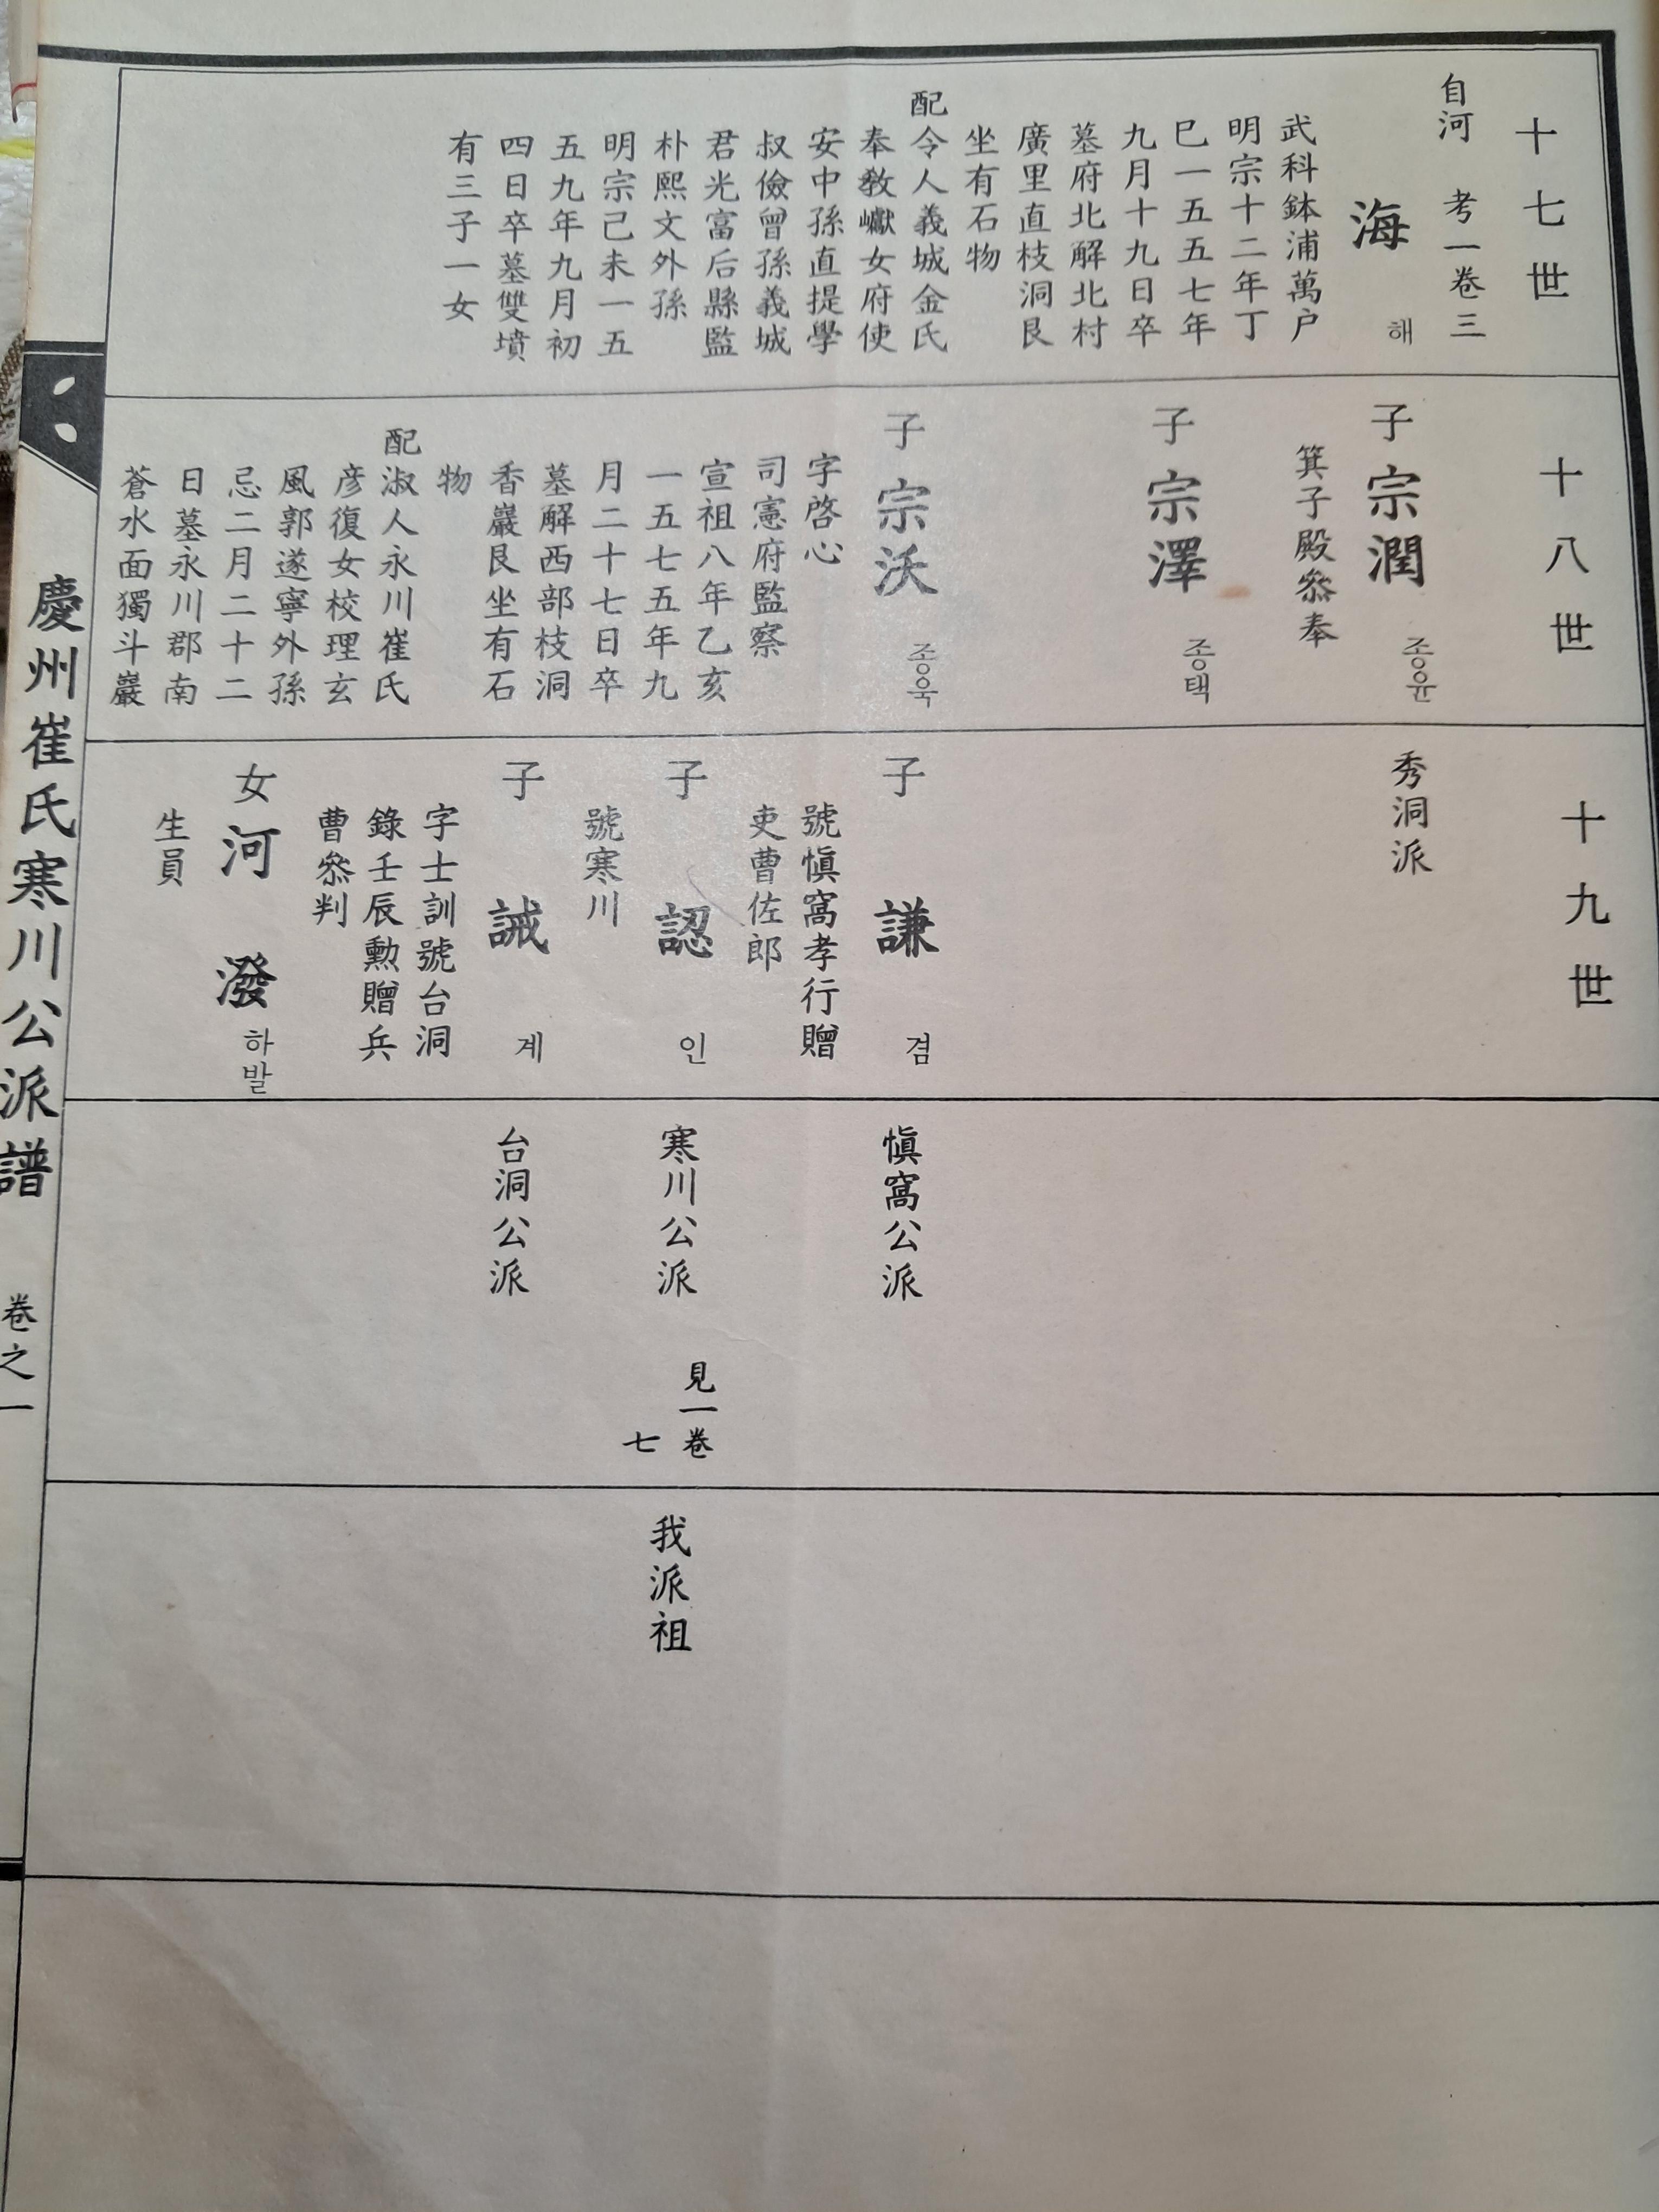 十七世
自河 考一卷三
海 해
武科鉢浦萬户
明宗十二年丁
巳一五五七年
九月十九日卒
墓府北解北村
廣里直枝洞艮
坐有石物
配令人義城金氏
奉教巘女府使
安中孫直提學
叔儉曾孫義城
君光富后縣監
朴熙文外孫
明宗己未一五
五九年九月初
四日卒墓雙墳
有三子一女
十八世
子宗潤 종윤
箕子殿叅奉
子宗澤 종택
子宗沃 종옥
字啓心
司憲府監察
宣祖八年乙亥
一五七五年九
月二十七日卒
墓解西部枝洞
香巖艮坐有石
物
配淑人永川崔氏
彦復女校理玄
風郭遂寧外孫
忌二月二十二
日墓永川郡南
蒼水面獨斗巖
十九世
秀洞派
子謙 겸
號愼窩孝行贈
吏曹佐郎
子認 인
號寒川
子誡 계
字士訓號台洞
錄壬辰勳贈兵
曹叅判
女河潑 하발
生員
愼窩公派
寒川公派
見一卷
七
台洞公派
我派祖
慶州崔氏寒川公派譜 卷之一